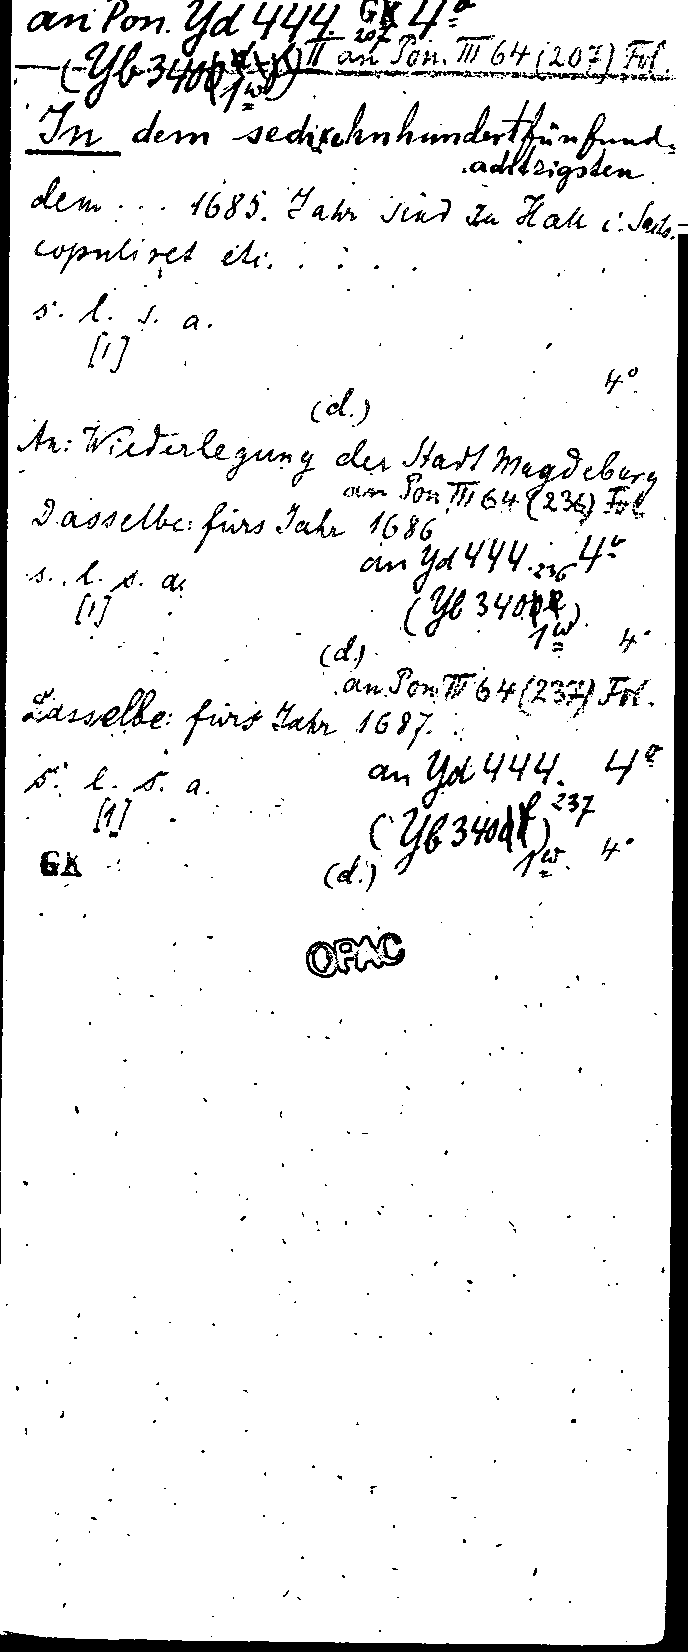 an Pon. Yd 444. GK 4º
207
(Yb 3400 II an Pon. III 64 (207) Fol.
1w
In dem sechzehnhundertfünfund-
achtzigsten
dem . . . 1685. Jahr sind zu Hall i. Sachs.
copuliret etc. . . . .
s. l. s. a.
[1]
4º
(d.)
An: Wiederlegung der Stadt Magdeburg
an Pon III 64 (236) Fol
Dasselbe: fürs Jahr 1686
an Yd 444. 236 4º
s. l. s. a.
[1]
(Yb 340
1w
4º
(d.)
an Pon III 64 (237) Fol.
Dasselbe: fürs Jahr 1687.
an Yd 444. 4º
s. l. s. a.
237
[1]
(Yb 340
1w. 4º
GK
(d.)
OPAC